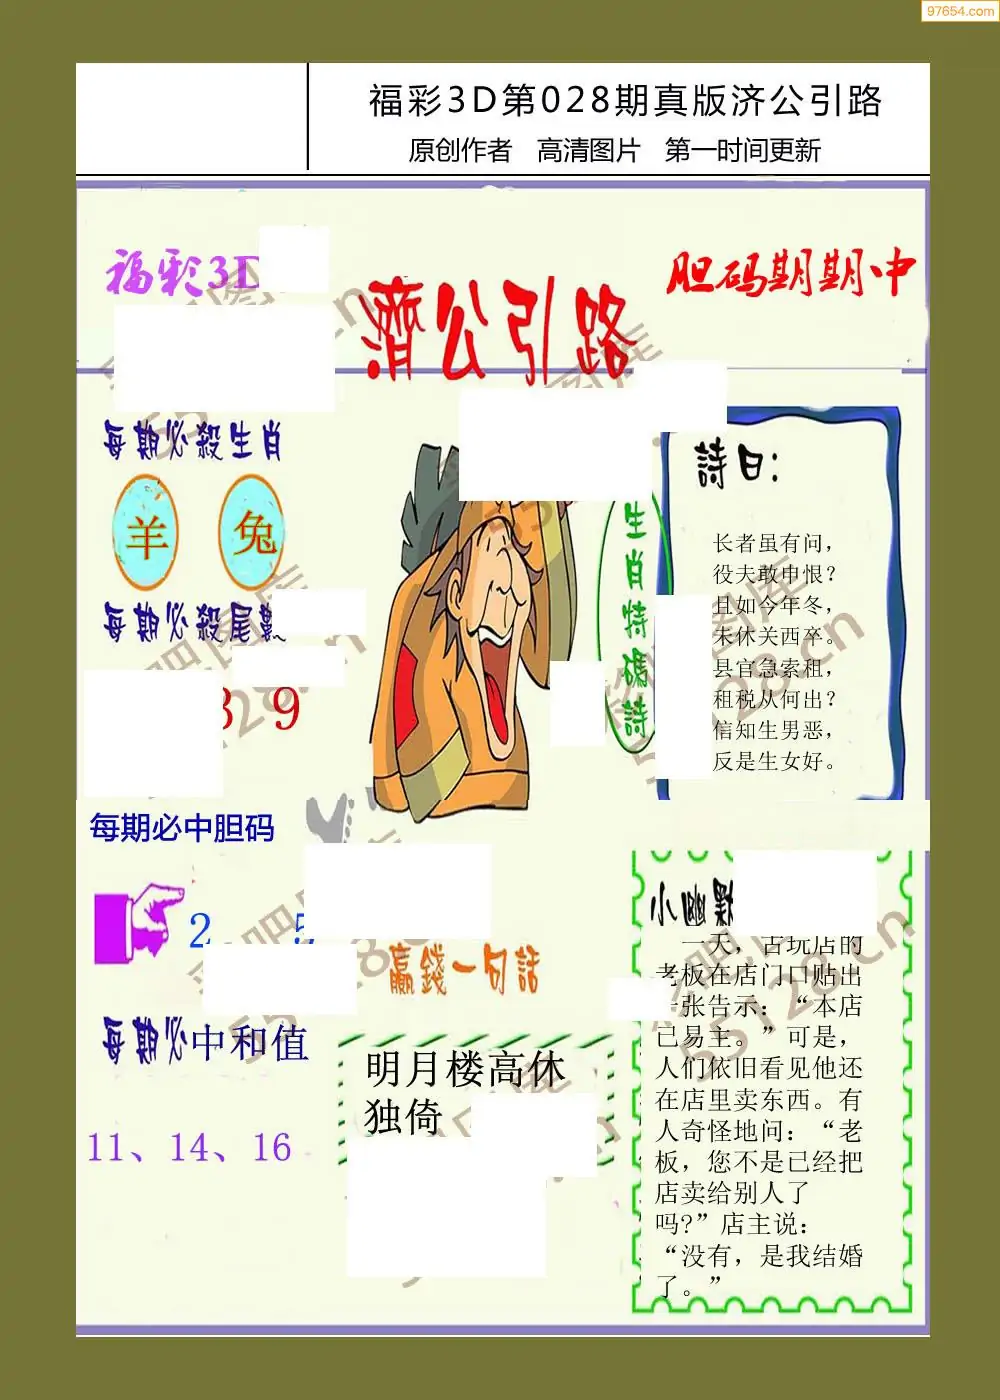 97654.com
福彩3D第028期真版济公引路
原创作者 高清图片 第一时间更新
福彩3D
濟公引路
胆码期期中
每期必殺生肖
羊 兔
每期必殺尾數
3 9
每期必中胆码
2 5
每期必中和值
11、14、16
生肖特碼詩
詩曰:
长者虽有问，
役夫敢申恨？
且如今年冬，
未休关西卒。
县官急索租，
租税从何出？
信知生男恶，
反是生女好。
贏錢一句話
明月楼高休
独倚
小幽默
一天，古玩店的
老板在店门口贴出
一张告示：“本店
已易主。”可是，
人们依旧看见他还
在店里卖东西。有
人奇怪地问：“老
板，您不是已经把
店卖给别人了
吗?”店主说：
“没有，是我结婚
了。”